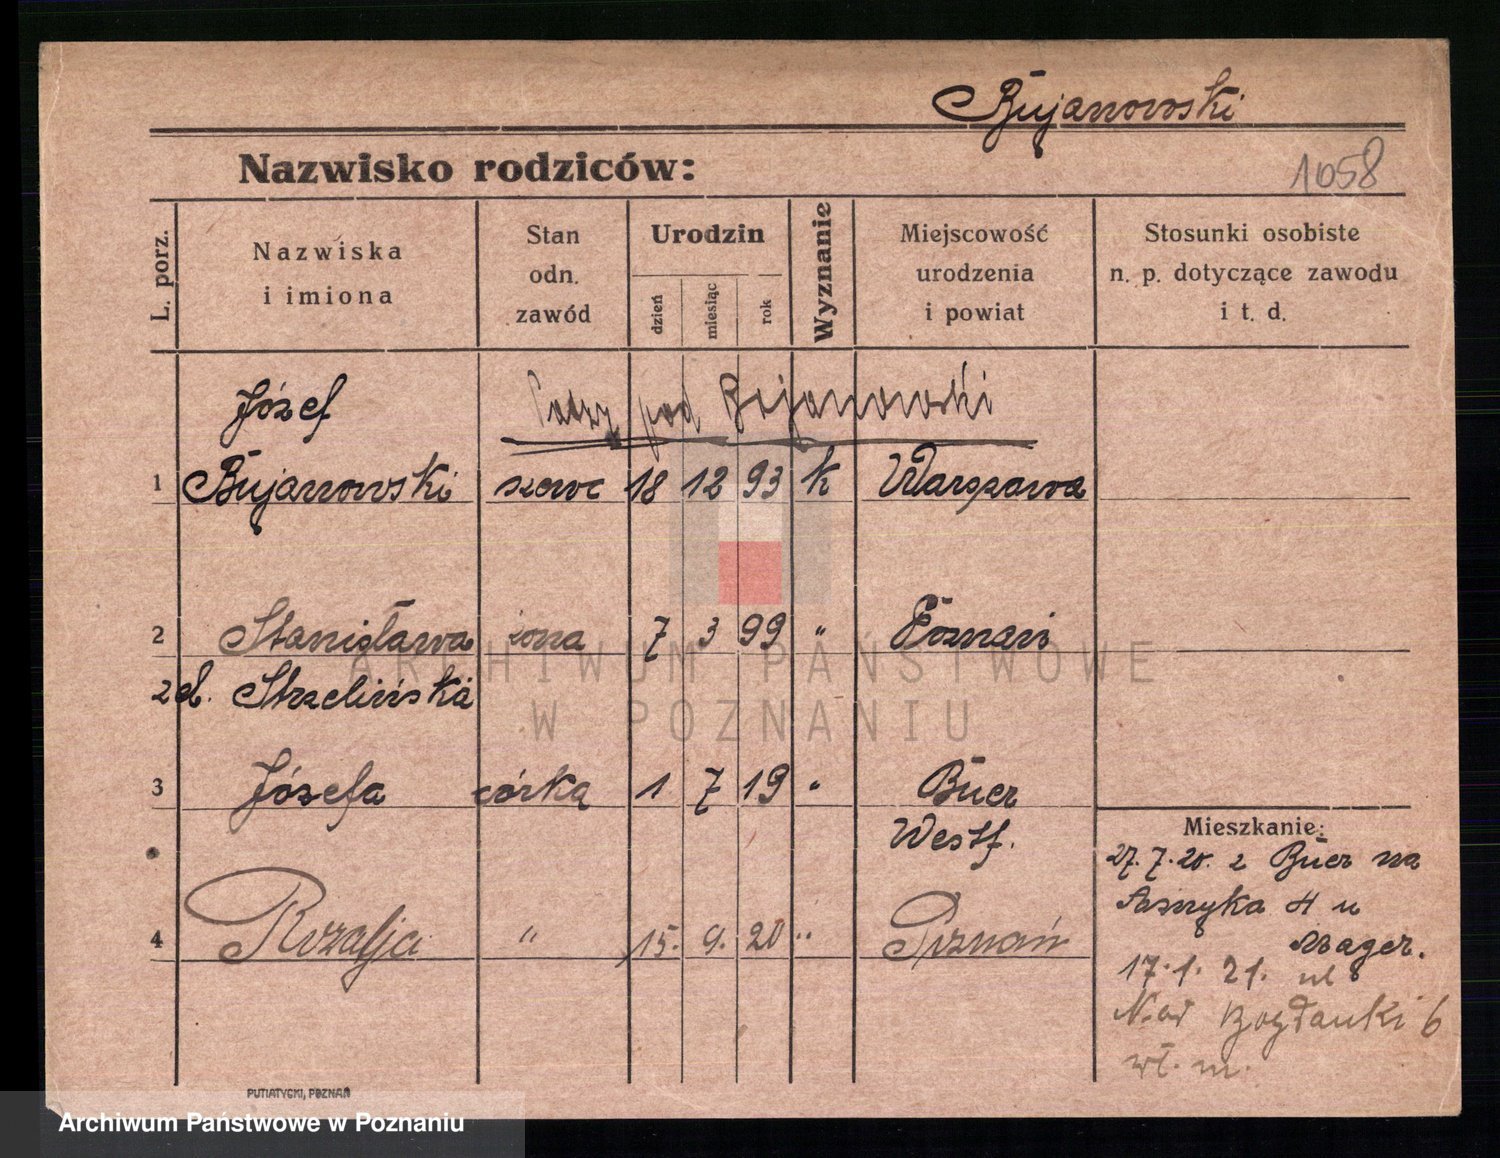 Bujanowski
Nazwisko rodziców:
1058
L. porz.
Nazwiska
i imiona
Stan
odn.
zawód
Urodzin
dzień
miesiąc
rok
Wyznanie
Miejscowość
urodzenia
i powiat
Stosunki osobiste
n. p. dotyczące zawodu
i t. d.
Patrz pod Bojanowski
Józef
1 Bujanowski szewc 18 12 93 k Warszawa
2 Stanisława żona 7 3 99 " Poznań
zd. Strzelińska
3 Józefa córka 1 7 19 " Buer
Westf.
4 Rozalja " 15. 9. 20 " Poznań
Mieszkanie:
27. 7. 20. z Buer na
4 u
Mager.
17. 1. 21. ul
Nad Bogdanki 6
wł. m.
PUTIATYCKI, POZNAŃ
ARCHIWUM PAŃSTWOWE
W POZNANIU
Archiwum Państwowe w Poznaniu